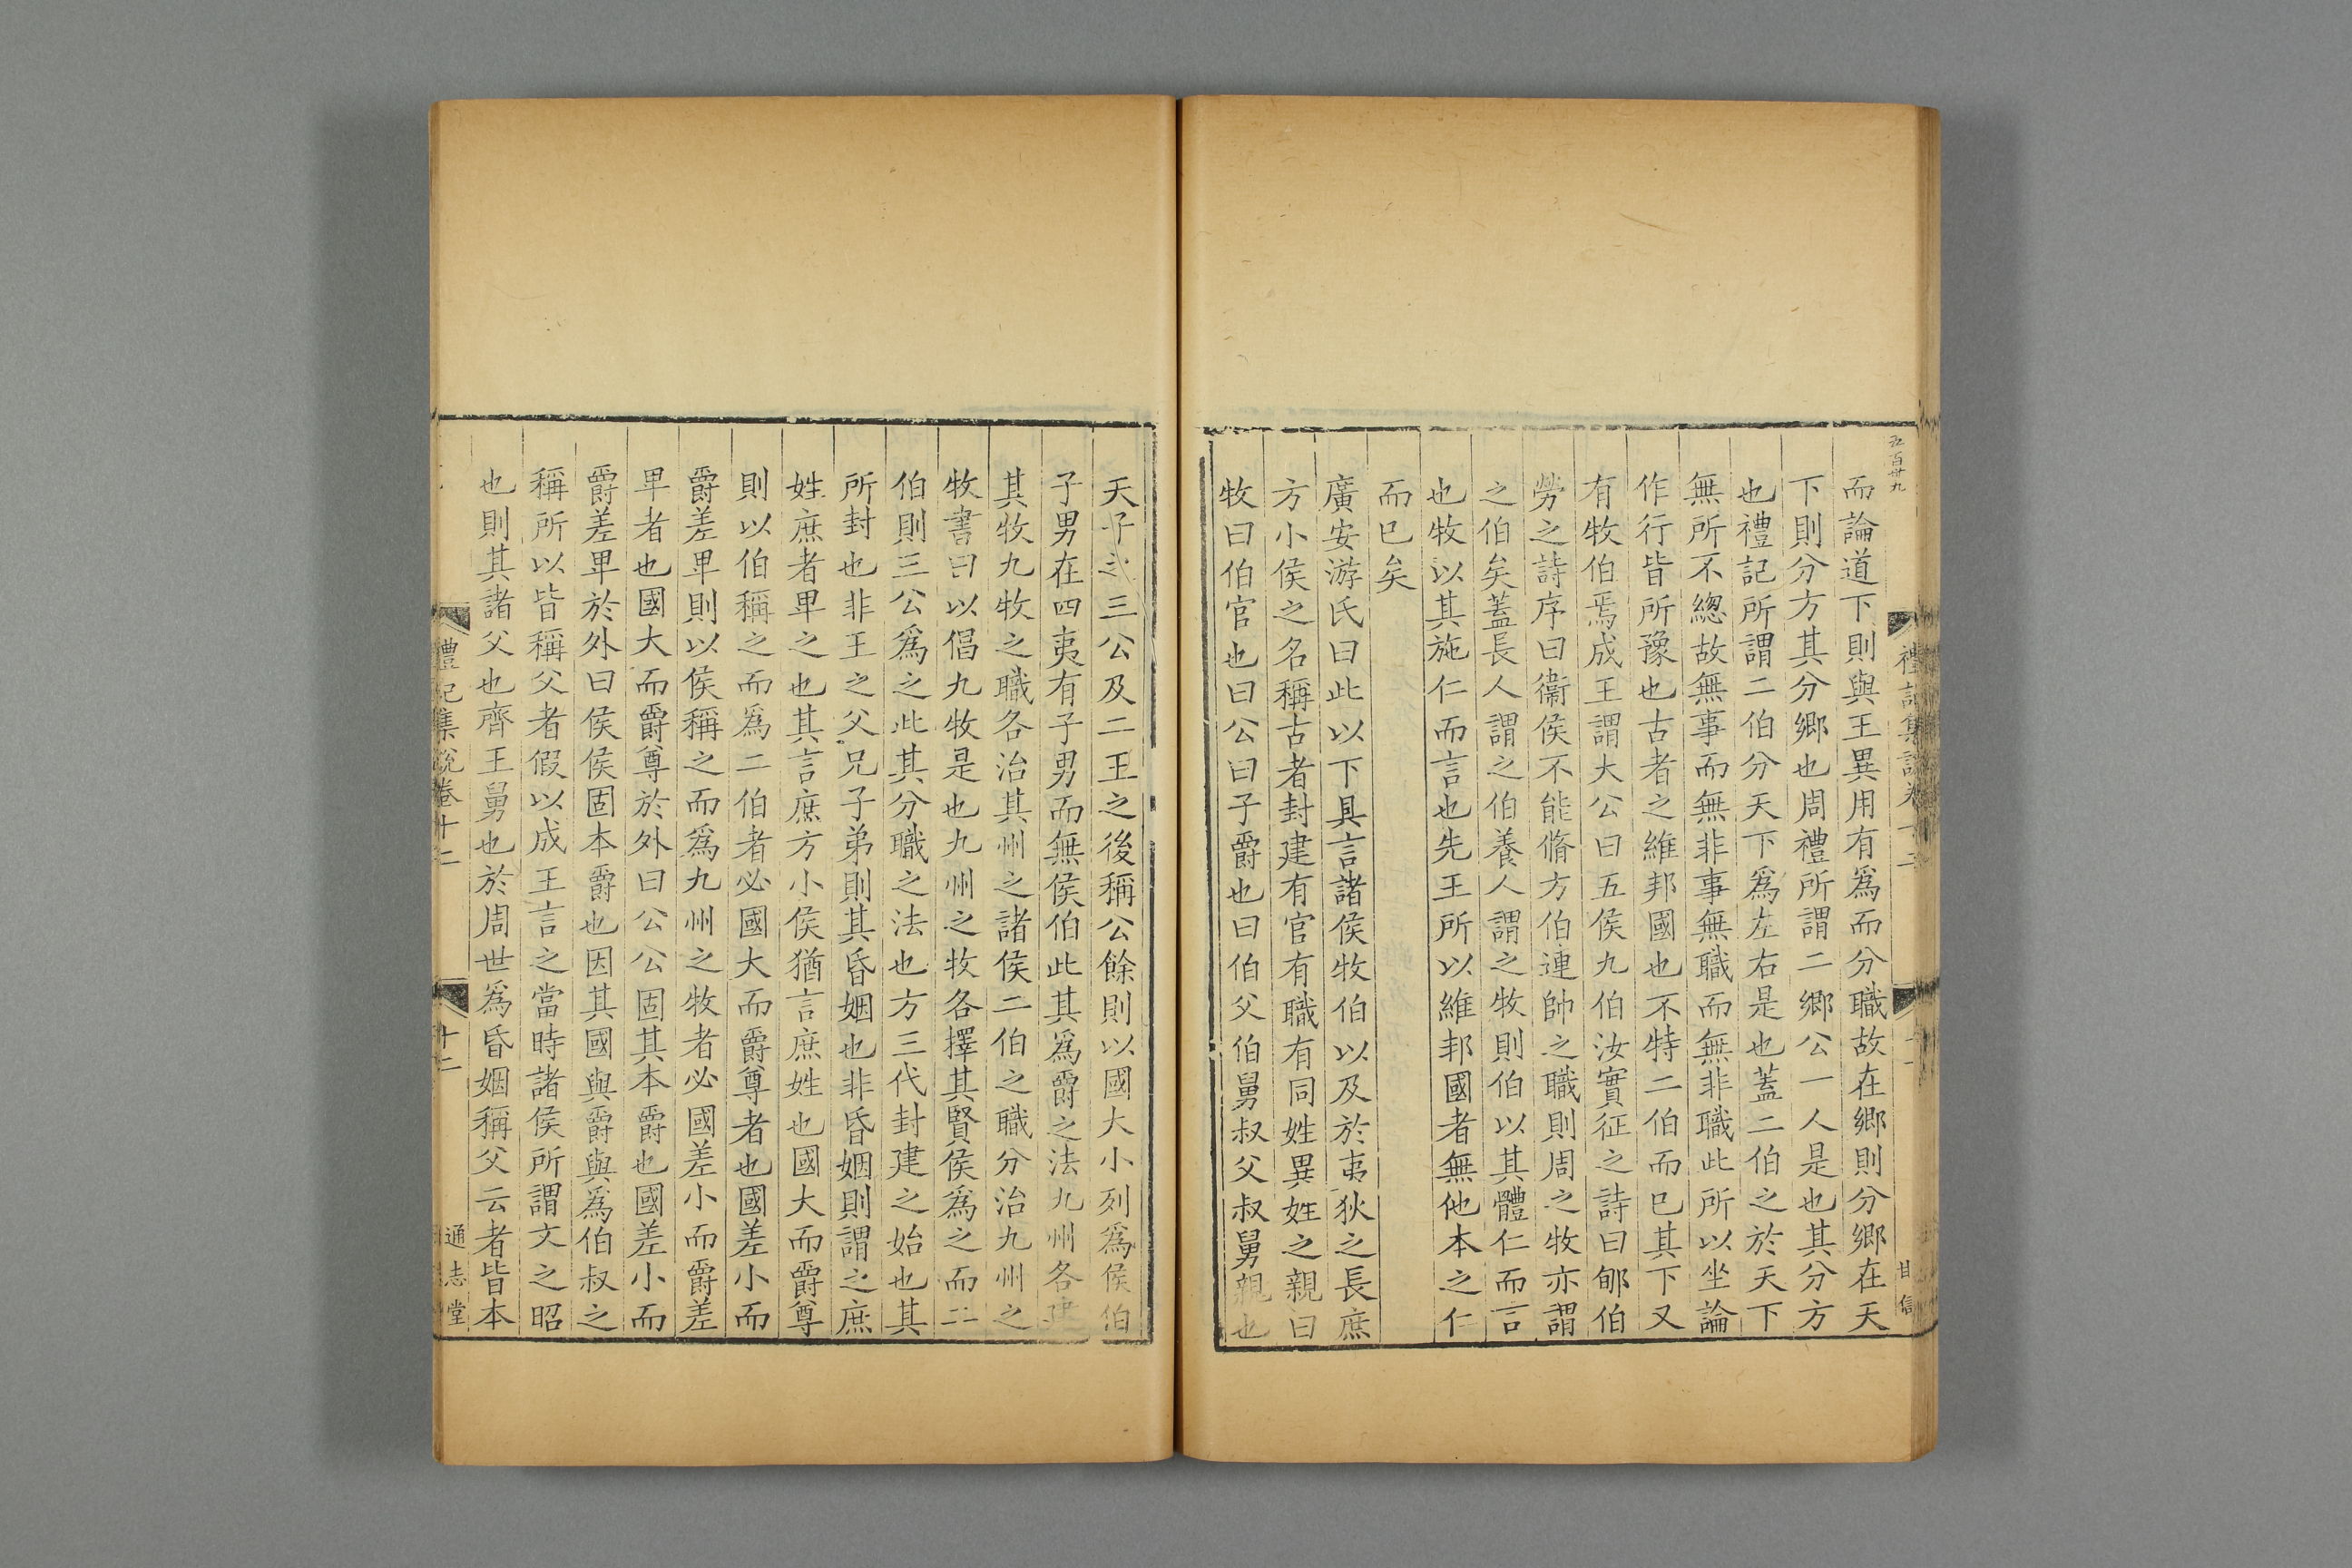 五百卅九
而論道下則與王異用有爲而分職故在鄉則分鄉在天
下則分方其分鄉也周禮所謂二鄉公一人是也其分方
也禮記所謂二伯分天下爲左右是也蓋二伯之於天下
無所不緫故無事而無非事無職而無非職此所以坐論
作行皆所豫也古者之維邦國也不特二伯而已其下又
有牧伯焉成王謂大公曰五侯九伯汝實征之詩曰郇伯
勞之詩序曰衞侯不能脩方伯連帥之職則周之牧亦謂
之伯矣蓋長人謂之伯養人謂之牧則伯以其體仁而言
也牧以其施仁而言也先王所以維邦國者無他本之仁
而已矣
廣安游氏曰此以下具言諸侯牧伯以及於夷狄之長庶
方小侯之名稱古者封建有官有職有同姓異姓之親曰
牧曰伯官也曰公曰子爵也曰伯父伯舅叔父叔舅親也
天子之三公及二王之後稱公餘則以國大小列爲侯伯
子男在四夷有子男而無侯伯此其爲爵之法九州各建
其牧九牧之職各治其州之諸侯二伯之職分治九州之
牧書曰以倡九牧是也九州之牧各擇其賢侯爲之而二
伯則三公爲之此其分職之法也方三代封建之始也其
所封也非王之父兄子弟則其昏姻也非昏姻則謂之庶
姓庶者卑之也其言庶方小侯猶言庶姓也國大而爵尊
則以伯稱之而爲二伯者必國大而爵尊者也國差小而
爵差卑則以侯稱之而爲九州之牧者必國差小而爵差
卑者也國大而爵尊於外曰公公固其本爵也國差小而
爵差卑於外曰侯侯固本爵也因其國與爵與爲伯叔之
稱所以皆稱父者假以成王言之當時諸侯所謂文之昭
也則其諸父也齊王舅也於周世爲昏姻稱父云者皆本
禮記集說卷十二
十二
通志堂